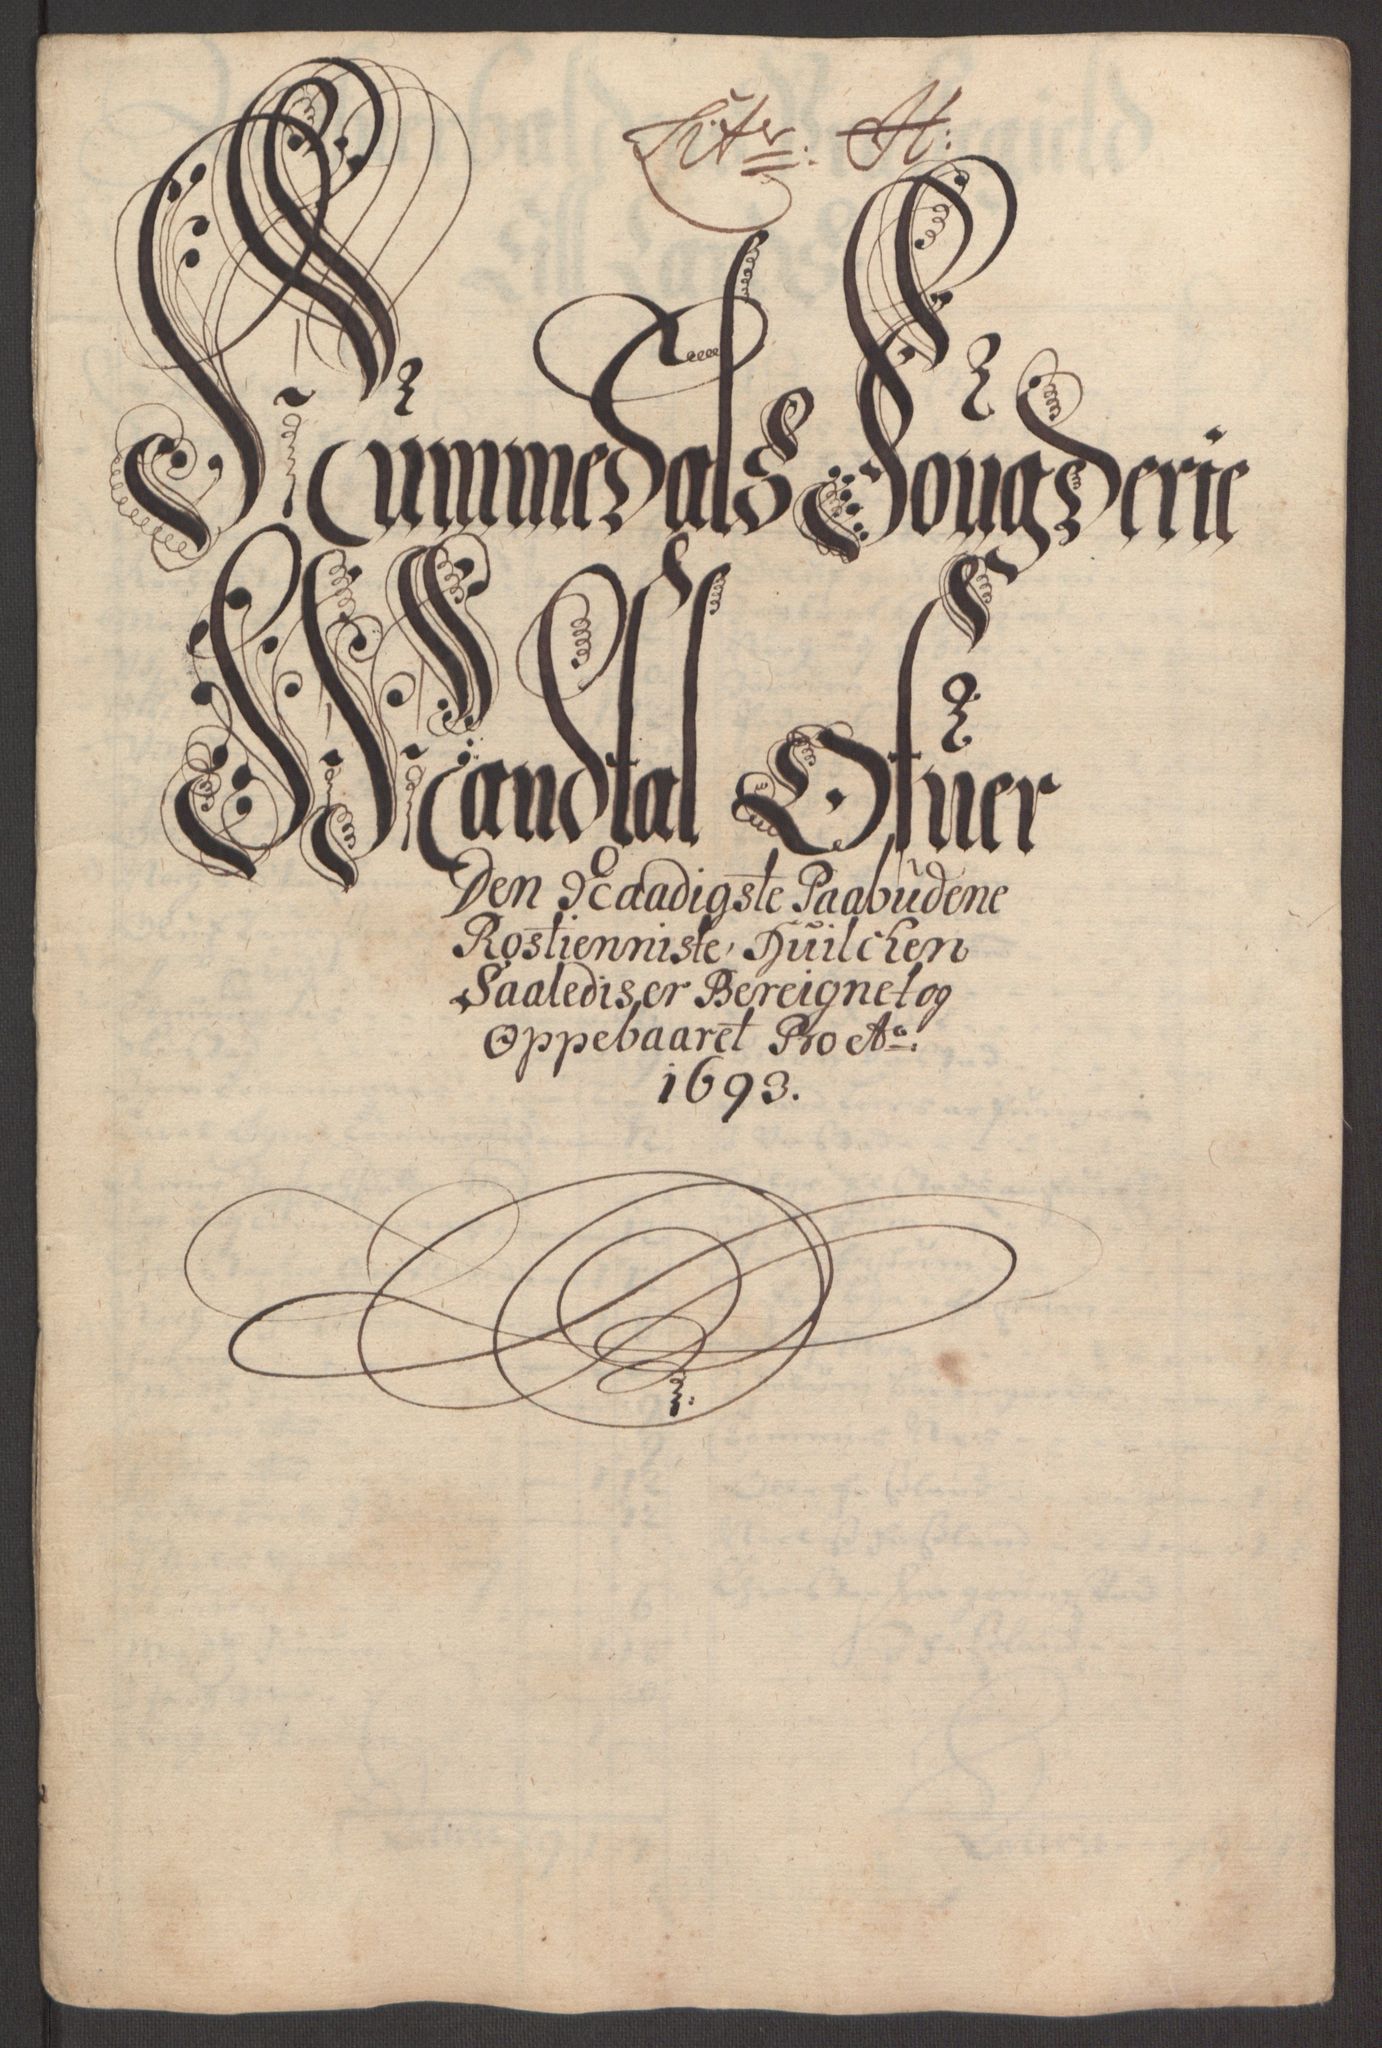 Liter: H:
Nummedals Fougderie
Mandtal Ofuer
Den Naadigste Paabudene
Rostienniste, Huilchen
Saaledis er Beregnet og
Oppebaaret Pro Ao:
1693.